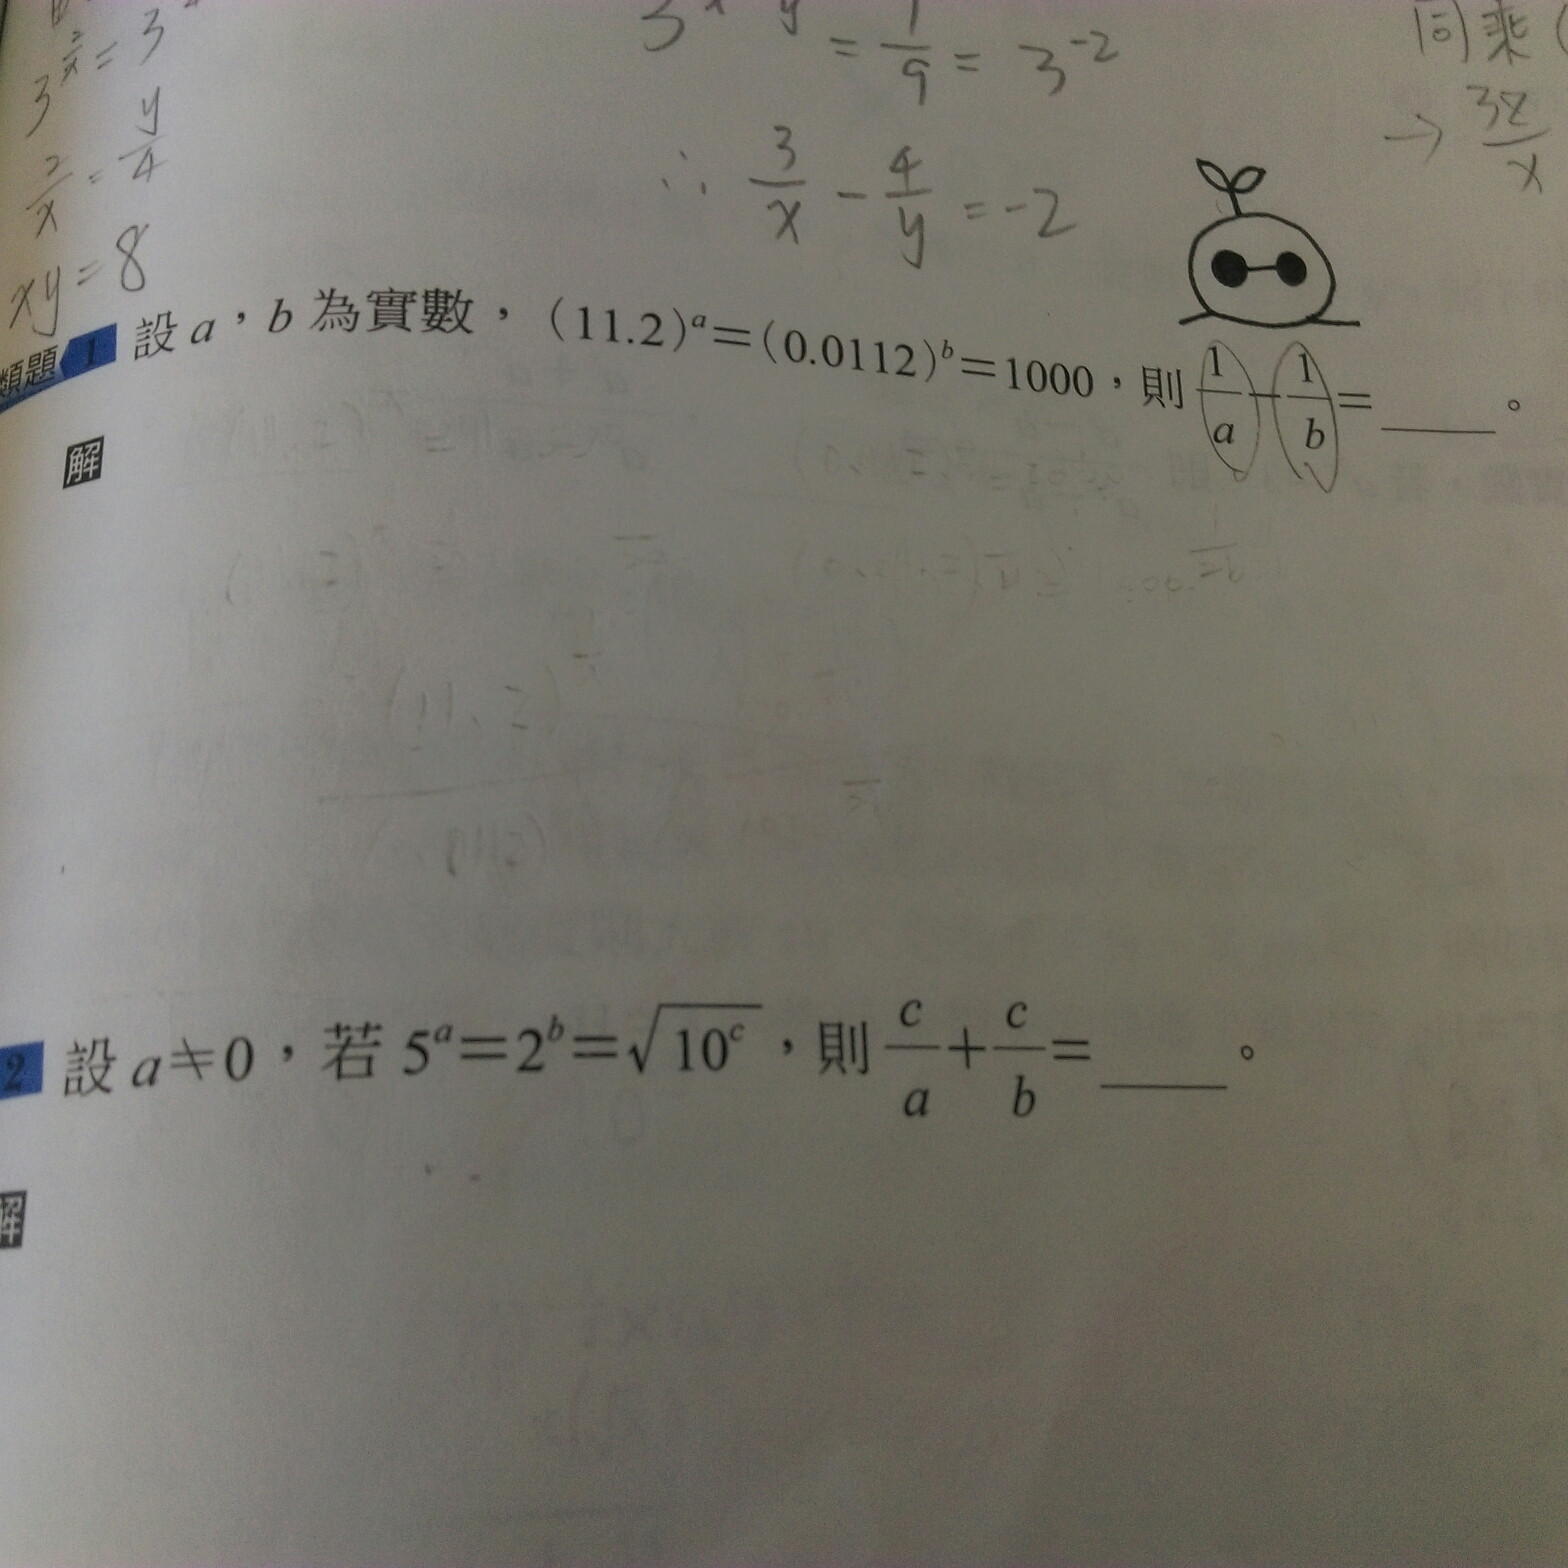 3^{2/x} = 3^{y/4}
2/x = y/4
xy = 8
= 1/9 = 3^{-2}
∴ 3/x - 4/y = -2
同乘
→ 3z/x
類題 1 設 a，b 為實數，(11.2)^a=(0.0112)^b=1000，則 1/a－1/b=____。
解
2 設 a≠0，若 5^a=2^b=√(10^c)，則 c/a+c/b=____。
解